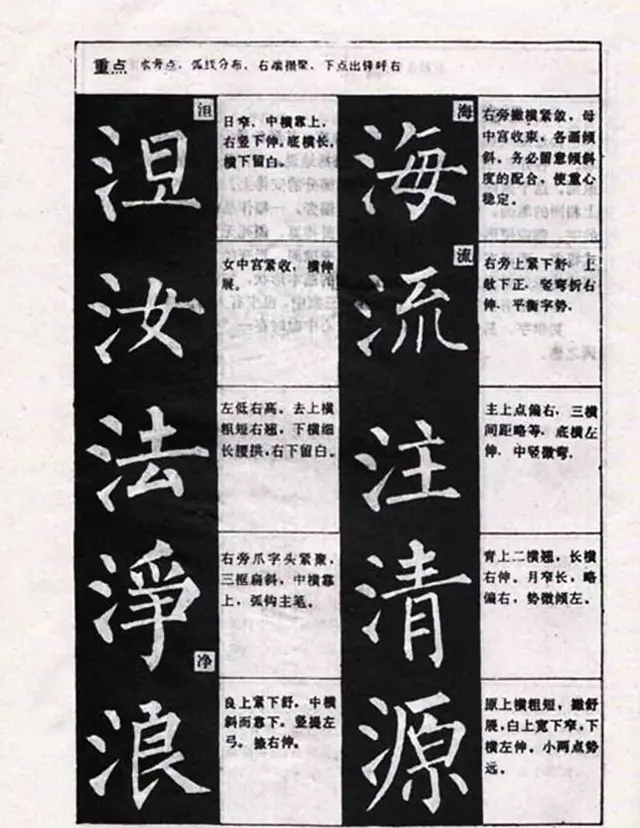 重点 水旁点，弧线分布，右端攒聚，下点出锋呼右
日窄，中横靠上，
右竖下伸，底横长，
横下留白。
汝
女中宫紧收，横伸
展。
法
左低右高，去上横
粗短右翘，下横细
长腰拱，右下留白。
淨
净
右旁爪字头紧聚，
三框扁斜，中横靠
上，弧钩主笔。
浪
良上紧下舒，中横
斜而靠下。竖提左
弓。捺右伸。
海
海
右旁撇横紧敛，母
中宫收束，各画倾
斜，务必留意倾斜
度的配合，使重心
稳定。
流
流
右旁上紧下舒，上
欹下正，竖弯折右
伸，平衡字势。
注
主上点偏右，三横
间距略等，底横左
伸，中竖微弯。
清
青上二横翘，长横
右伸。月窄长，略
偏右，势微倾左。
源
原上横粗短，撇舒
展，白上宽下窄，下
横左伸。小两点势
远。